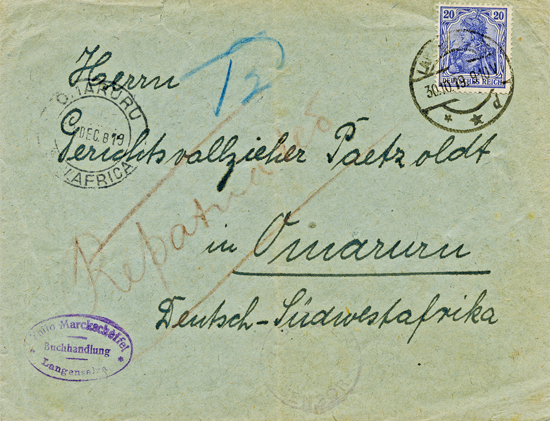 20 20
DEUTSCHES REICH
30.10.19. 9-10 V
P
T2
Herrn
OMARURU
DEC. 8 19
AFRICA
Gerichtsvollzieher Paetzoldt
Repatriated
in Omaruru
Deutsch-Südwestafrika
Marckscheffel
Buchhandlung
Langensalza